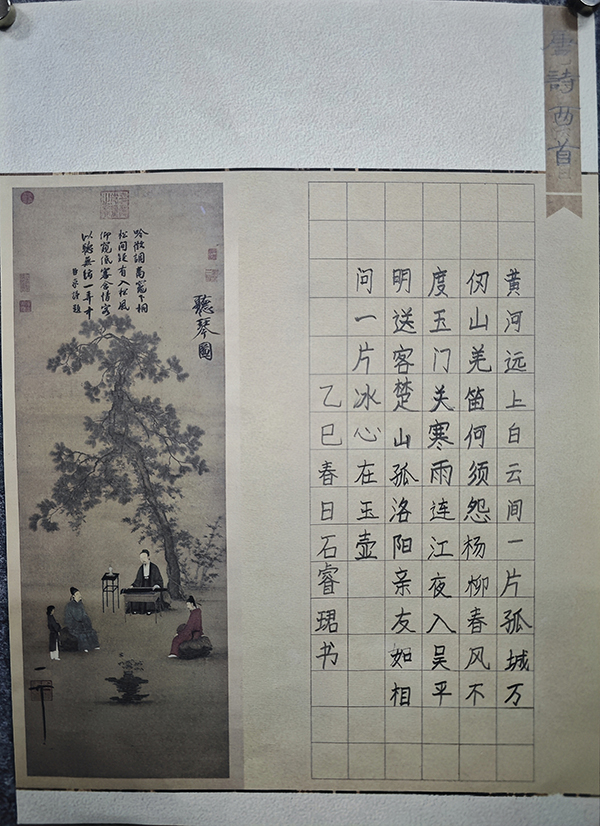 唐詩两首
黄河远上白云间一片孤城万
仞山羌笛何须怨杨柳春风不
度玉门关寒雨连江夜入吴平
明送客楚山孤洛阳亲友如相
问一片冰心在玉壶
乙巳春日石睿珺书
聽琴圖
吟徵調商竈下桐
松間疑有入松風
仰窺低審含情客
以聽無絃一弄中
臣京謹題